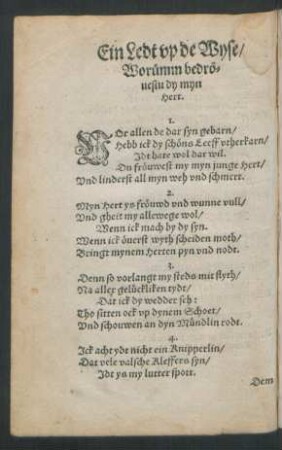 Ein Ledt vp de Wyse/
Worümm bedrö-
uestu dy myn
Hert.
1.
VOr allen de dar syn gebarn/
Hebb ick dy schöns Leeff vtherkarn/
Idt hate wol dar wil.
Du fröuwest my myn junge Hert/
Vnd linderst all myn weh vnd schmert.
2.
Myn Hert ys fröuwd vnd wunne vull/
Vnd gheit my allewege wol/
Wenn ick mach by dy syn.
Wenn ick öuerst wyth scheiden moth/
Bringt mynem Herten pyn vnd nodt.
3.
Denn so vorlangt my steds mit flyth/
Na aller gelückliken tydt/
Dat ick dy wedder seh:
Tho sitten ock vp dynem Schoet/
Vnd schouwen an dyn Mündlin rodt.
4.
Ick acht ydt nicht ein Knipperlin/
Dat vele valsche Kleffers syn/
Idt ys my lutter spott.
Dem